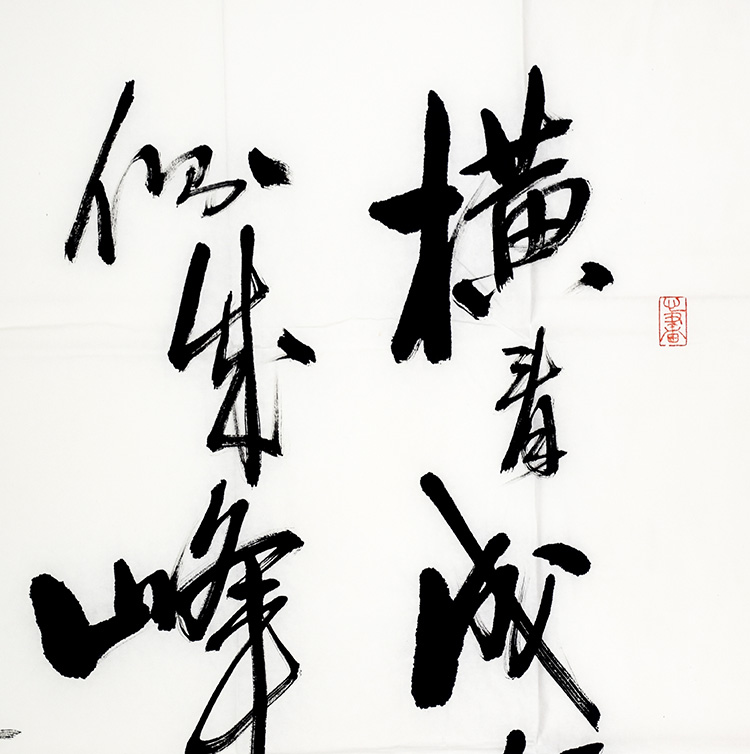 横看成
侧成峰